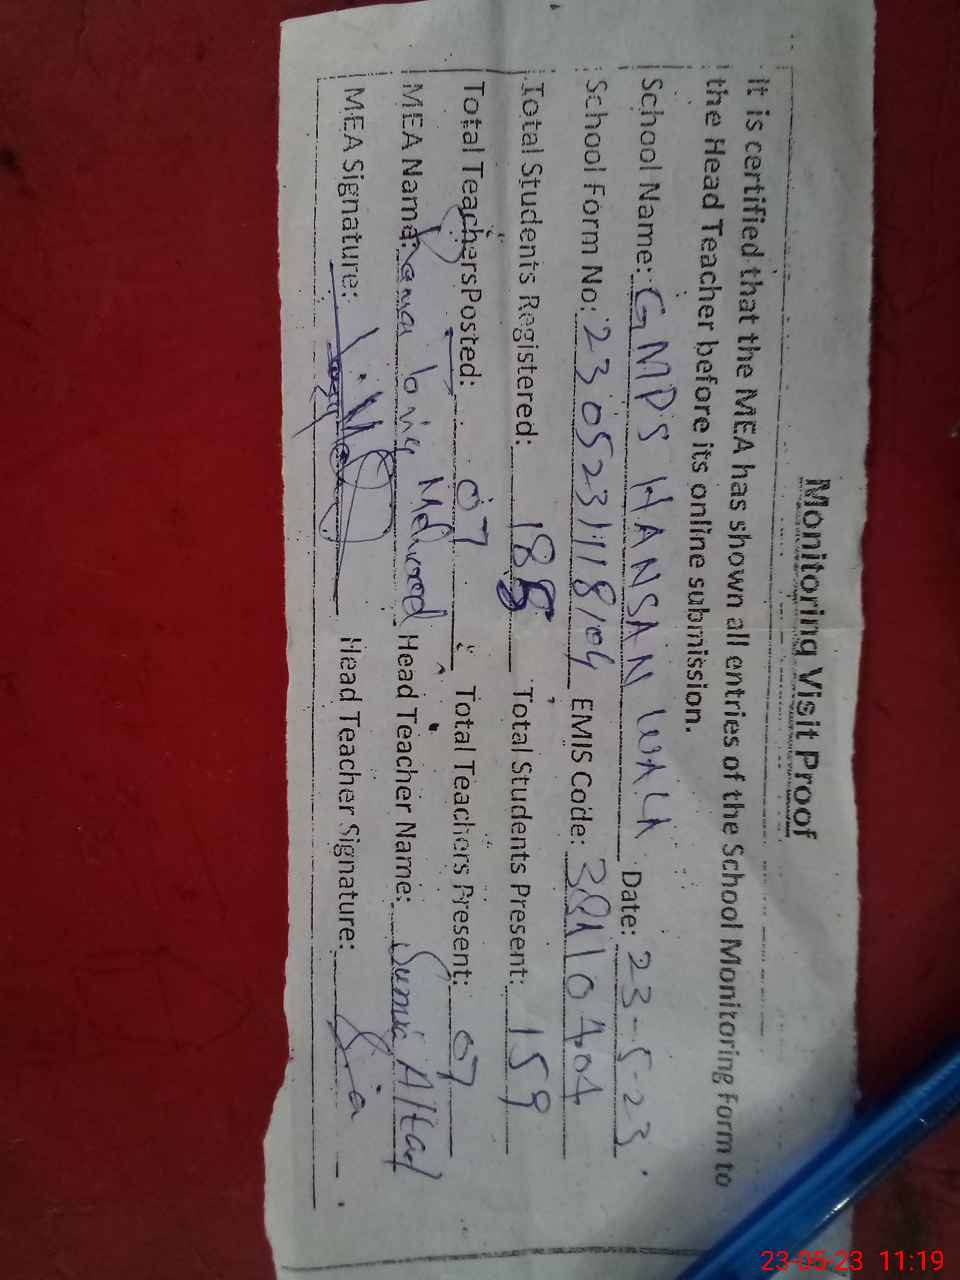 Monitoring Visit Proof
It is certified that the MEA has shown all entries of the School Monitoring Form to
the Head Teacher before its online submission.
School Name: GMPS HANSAN WALA Date: 23-5-23
School Form No: EMIS Code:
Total Students Registered: 188 Total Students Present: 159
Total TeachersPosted: 07 Total Teachers Present: 07
MEA Name: Head Teacher Name: Altaf
MEA Signature: Head Teacher Signature:
23-05-23 11:19